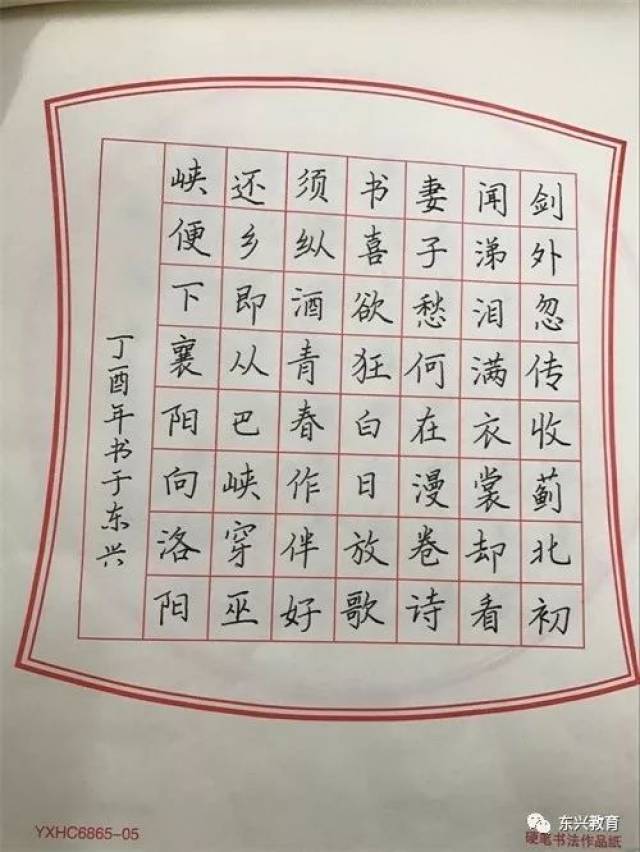 剑外忽传收蓟北初
闻涕泪满衣裳却看
妻子愁何在漫卷诗
书喜欲狂白日放歌
须纵酒青春作伴好
还乡即从巴峡穿巫
峡便下襄阳向洛阳
丁酉年书于东兴
YXHC6865-05
硬笔书法作品纸
东兴教育